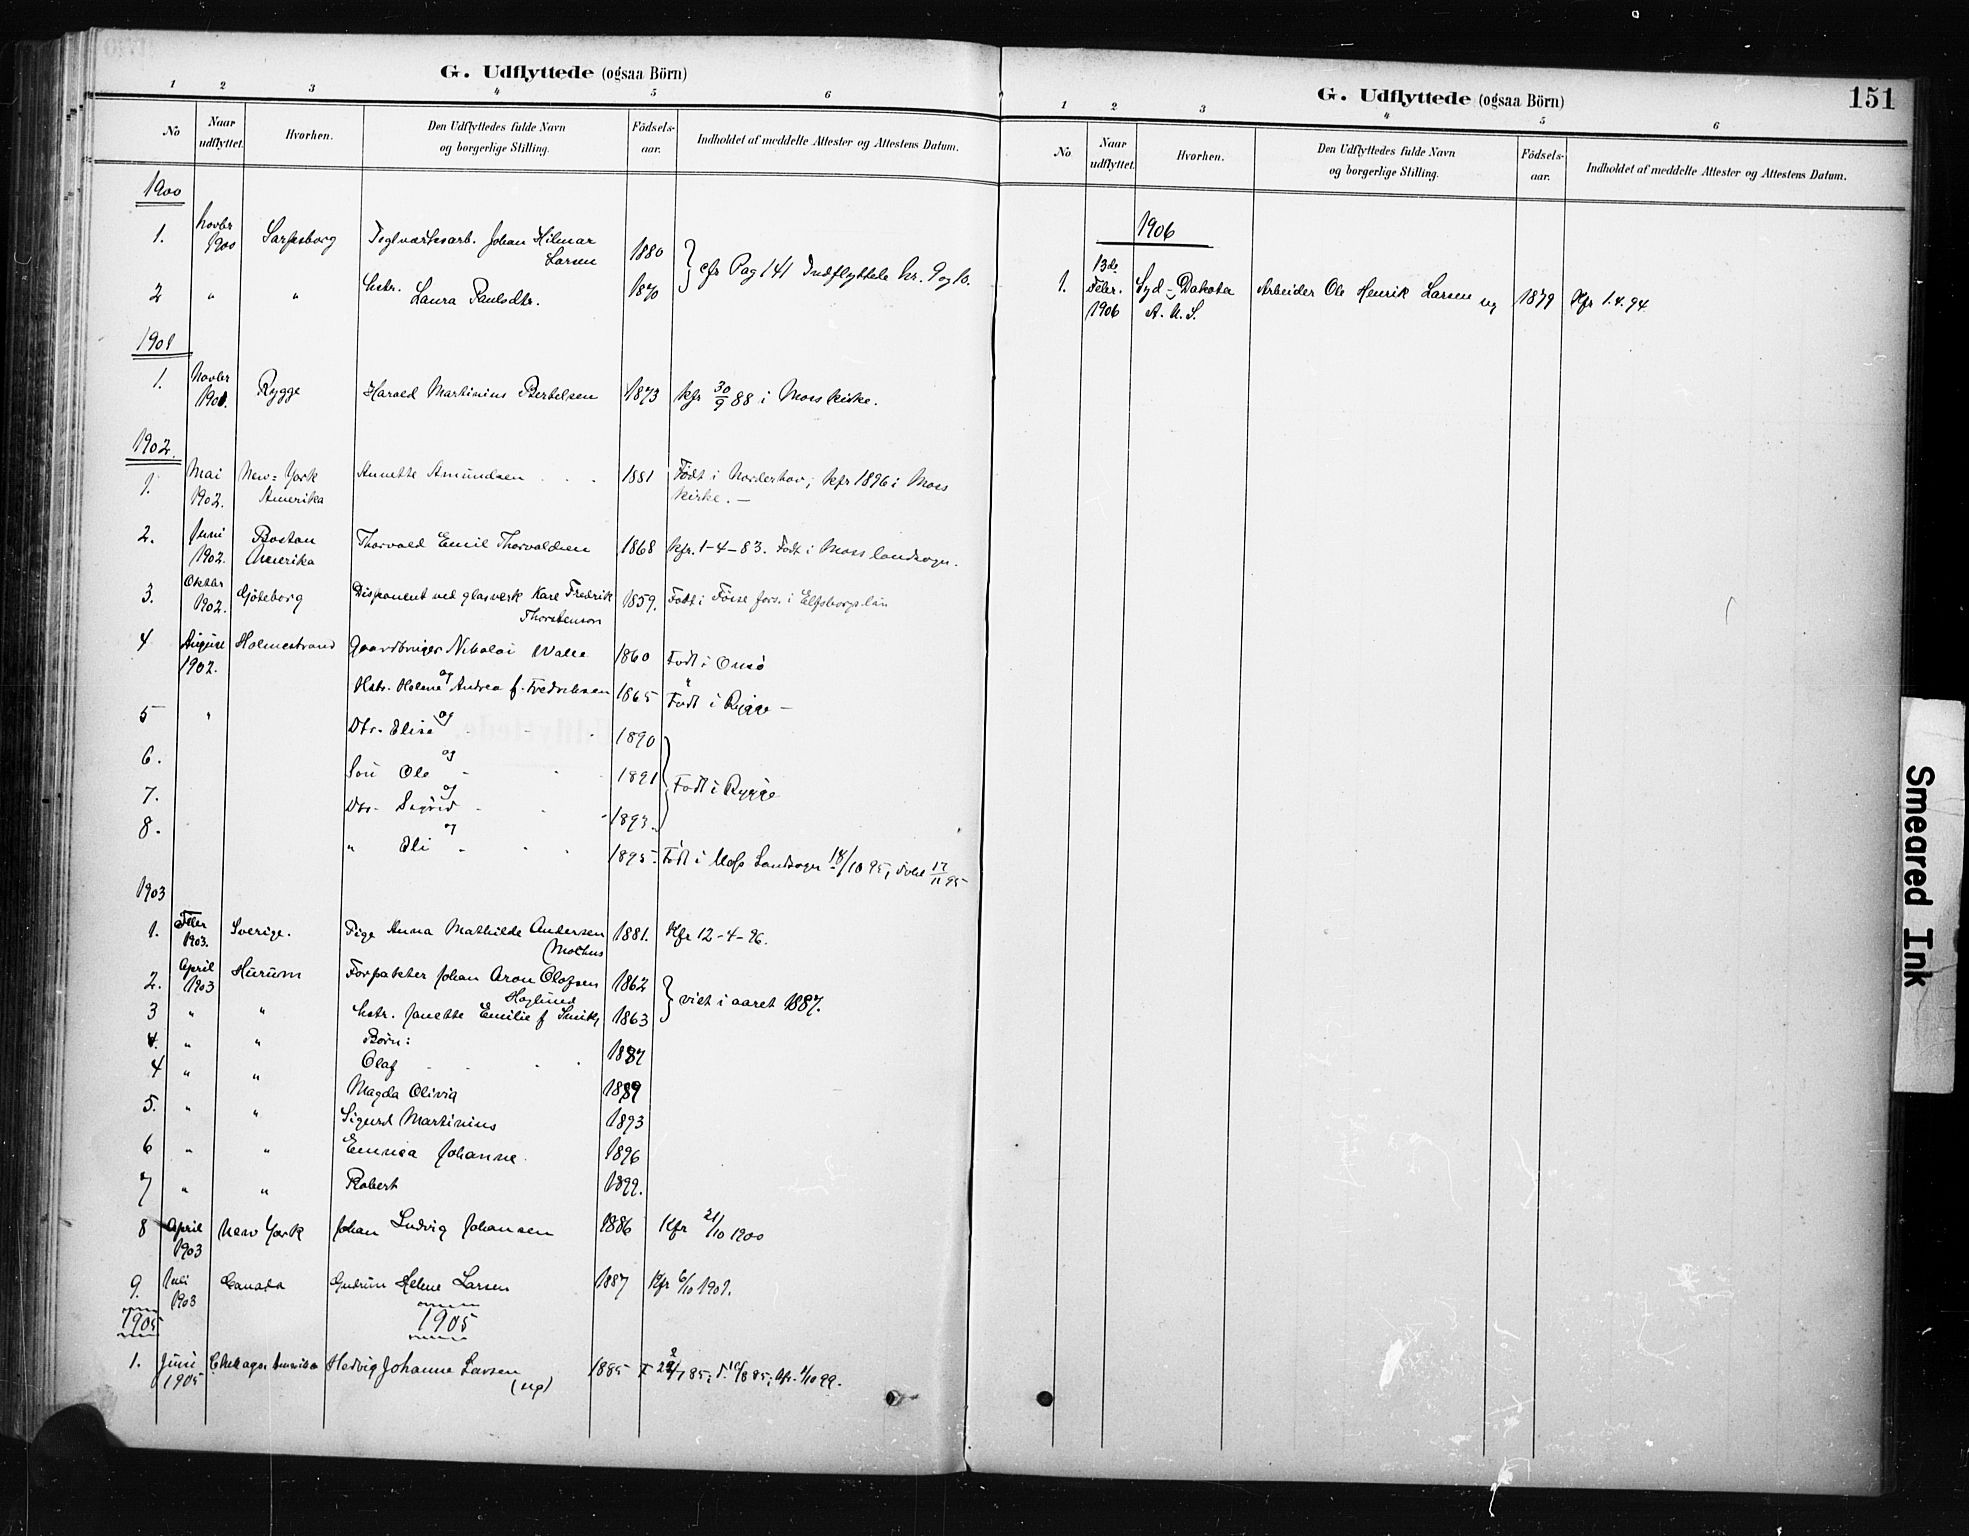 G. Udflyttede (ogsaa Börn)
1 2 3 4 5 6
No Naar udflyttet. Hvorhen. Den Udflyttedes fulde Navn og borgerlige Stilling. Födsels-aar. Indholdet af meddelte Attester og Attestens Datum.
1900
1. Novbr 1900 Sarpsborg Teglværksarb. Johan Hilmar Larsen 1880 } cfr Pag 141 Indflyttede Nr. 9 og 10.
2 " " Hstr. Laura Paulsdtr. 1870
1901
1. Novbr 1901. Rygge Harald Martinius Bertelsen 1873 Kfr 30/9 88 i Moss kirke.
1902.
1. Mai 1902. New-York Amerika Annette Amundsen 1881 Født i Norderhov; kfr 1896 i Moss
kirke. —
2. Juni 1902. Boston Amerika Thorvald Emil Thorvaldsen 1868 Kfr. 1-4-83. Født i Moss landsogn.
3. Oktbr 1902. Göteborg Disponent ved glasverk Karl Fredrik Thorstenson 1859. Født i Förse fors. i Elfsborgs län
4 August 1902. Holmestrand Gaardbruger Nikolai Walle 1860 Født i Onsö
og
Hstr. Helene Andrea f. Fredriksen 1865 Født i Rygge —
5 " og
Dtr. Elise " 1890
6. og
Sön Ole " 1891 } Født i Rygge
7. og
Dtr. Sigrid " 1893.
8. og
" Eli " 1895. Født i Moss Landsogn 18/10 95, döbt 17/11 95
1903
1. Feber 1903. Sverige. Pige Anna Mathilde Andersen 1881. Kfr 12-4-96.
2. April 1903 Hurum Forpakter Johan Aron Olofsen Hoglund 1862 } viet i aaret 1887.
3 " " Hstr. Janette Emilie f Smith 1863
4. " " Børn:
Olaf 1887
4 " " Magda Olivia 1889
5. " " Sigurd Martinius 1893
6 " " Emma Johanne 1896
7 " " Robert 1899.
8 April 1903 New York Johan Ludvig Johansen 1886 Kfr 21/10 1900
9. Juli 1903 Canada Gudrun Helene Larsen 1887 Kfr 6/10 1901.
1905 1905
1. Juni 1905 Chikago Amerika Hedvig Johanne Larsen (ug) 1885
G. Udflyttede (ogsaa Börn) 151
1 2 3 4 5 6
No. Naar udflyttet. Hvorhen. Den Udflyttedes fulde Navn og borgerlige Stilling. Födsels-aar. Indholdet af meddelte Attester og Attestens Datum.
1906
1. 13de Feber. 1906 Syd-Dakota A. U. S. Arbeider Ole Henrik Larsen ug 1879 Kfr 1.4.94
Smeared Ink